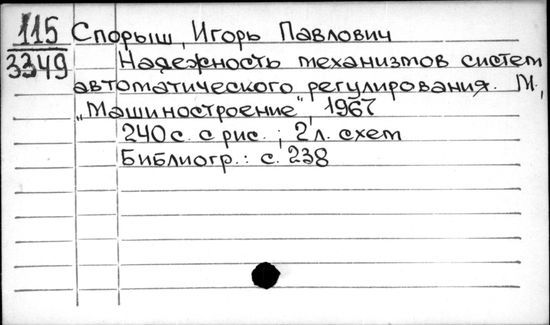 115 Спорыш, Игорь Павлович
3349 Надежность механизмов систем
автоматического регулирования. М.,
„Машиностроение", 1967
240 с. с рис.; 2 л. схем
Библиогр.: с. 238